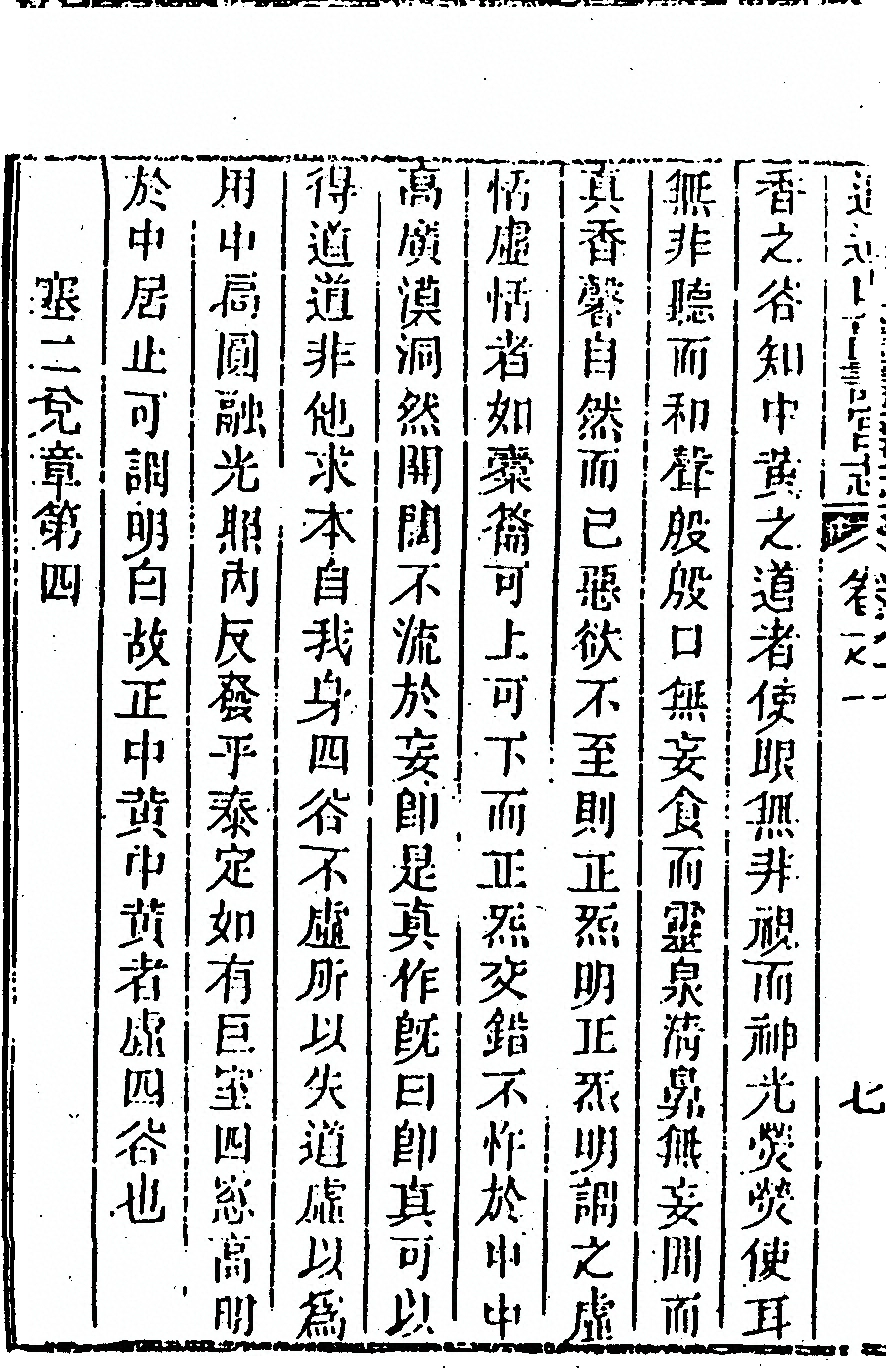 卷之一
七
香之谷知中黄之道者使眼無非視而神光熒熒使耳
無非聽而和聲殷殷口無妄食而靈泉淸鼻無妄聞而
真香馨自然而已惡欲不至則正炁明正炁明謂之虛
恬虛恬者如橐籥可上可下而正炁交錯不怍於中中
高廣漠洞然開闔不流於妄卽是真作旣曰卽真可以
得道道非他求本自我身四谷不虛所以失道虛以爲
用中扃圓融光照內反發乎泰定如有巨室四窓高明
於中居止可謂明白故正中黄中黄者虛四谷也
塞二兌章第四